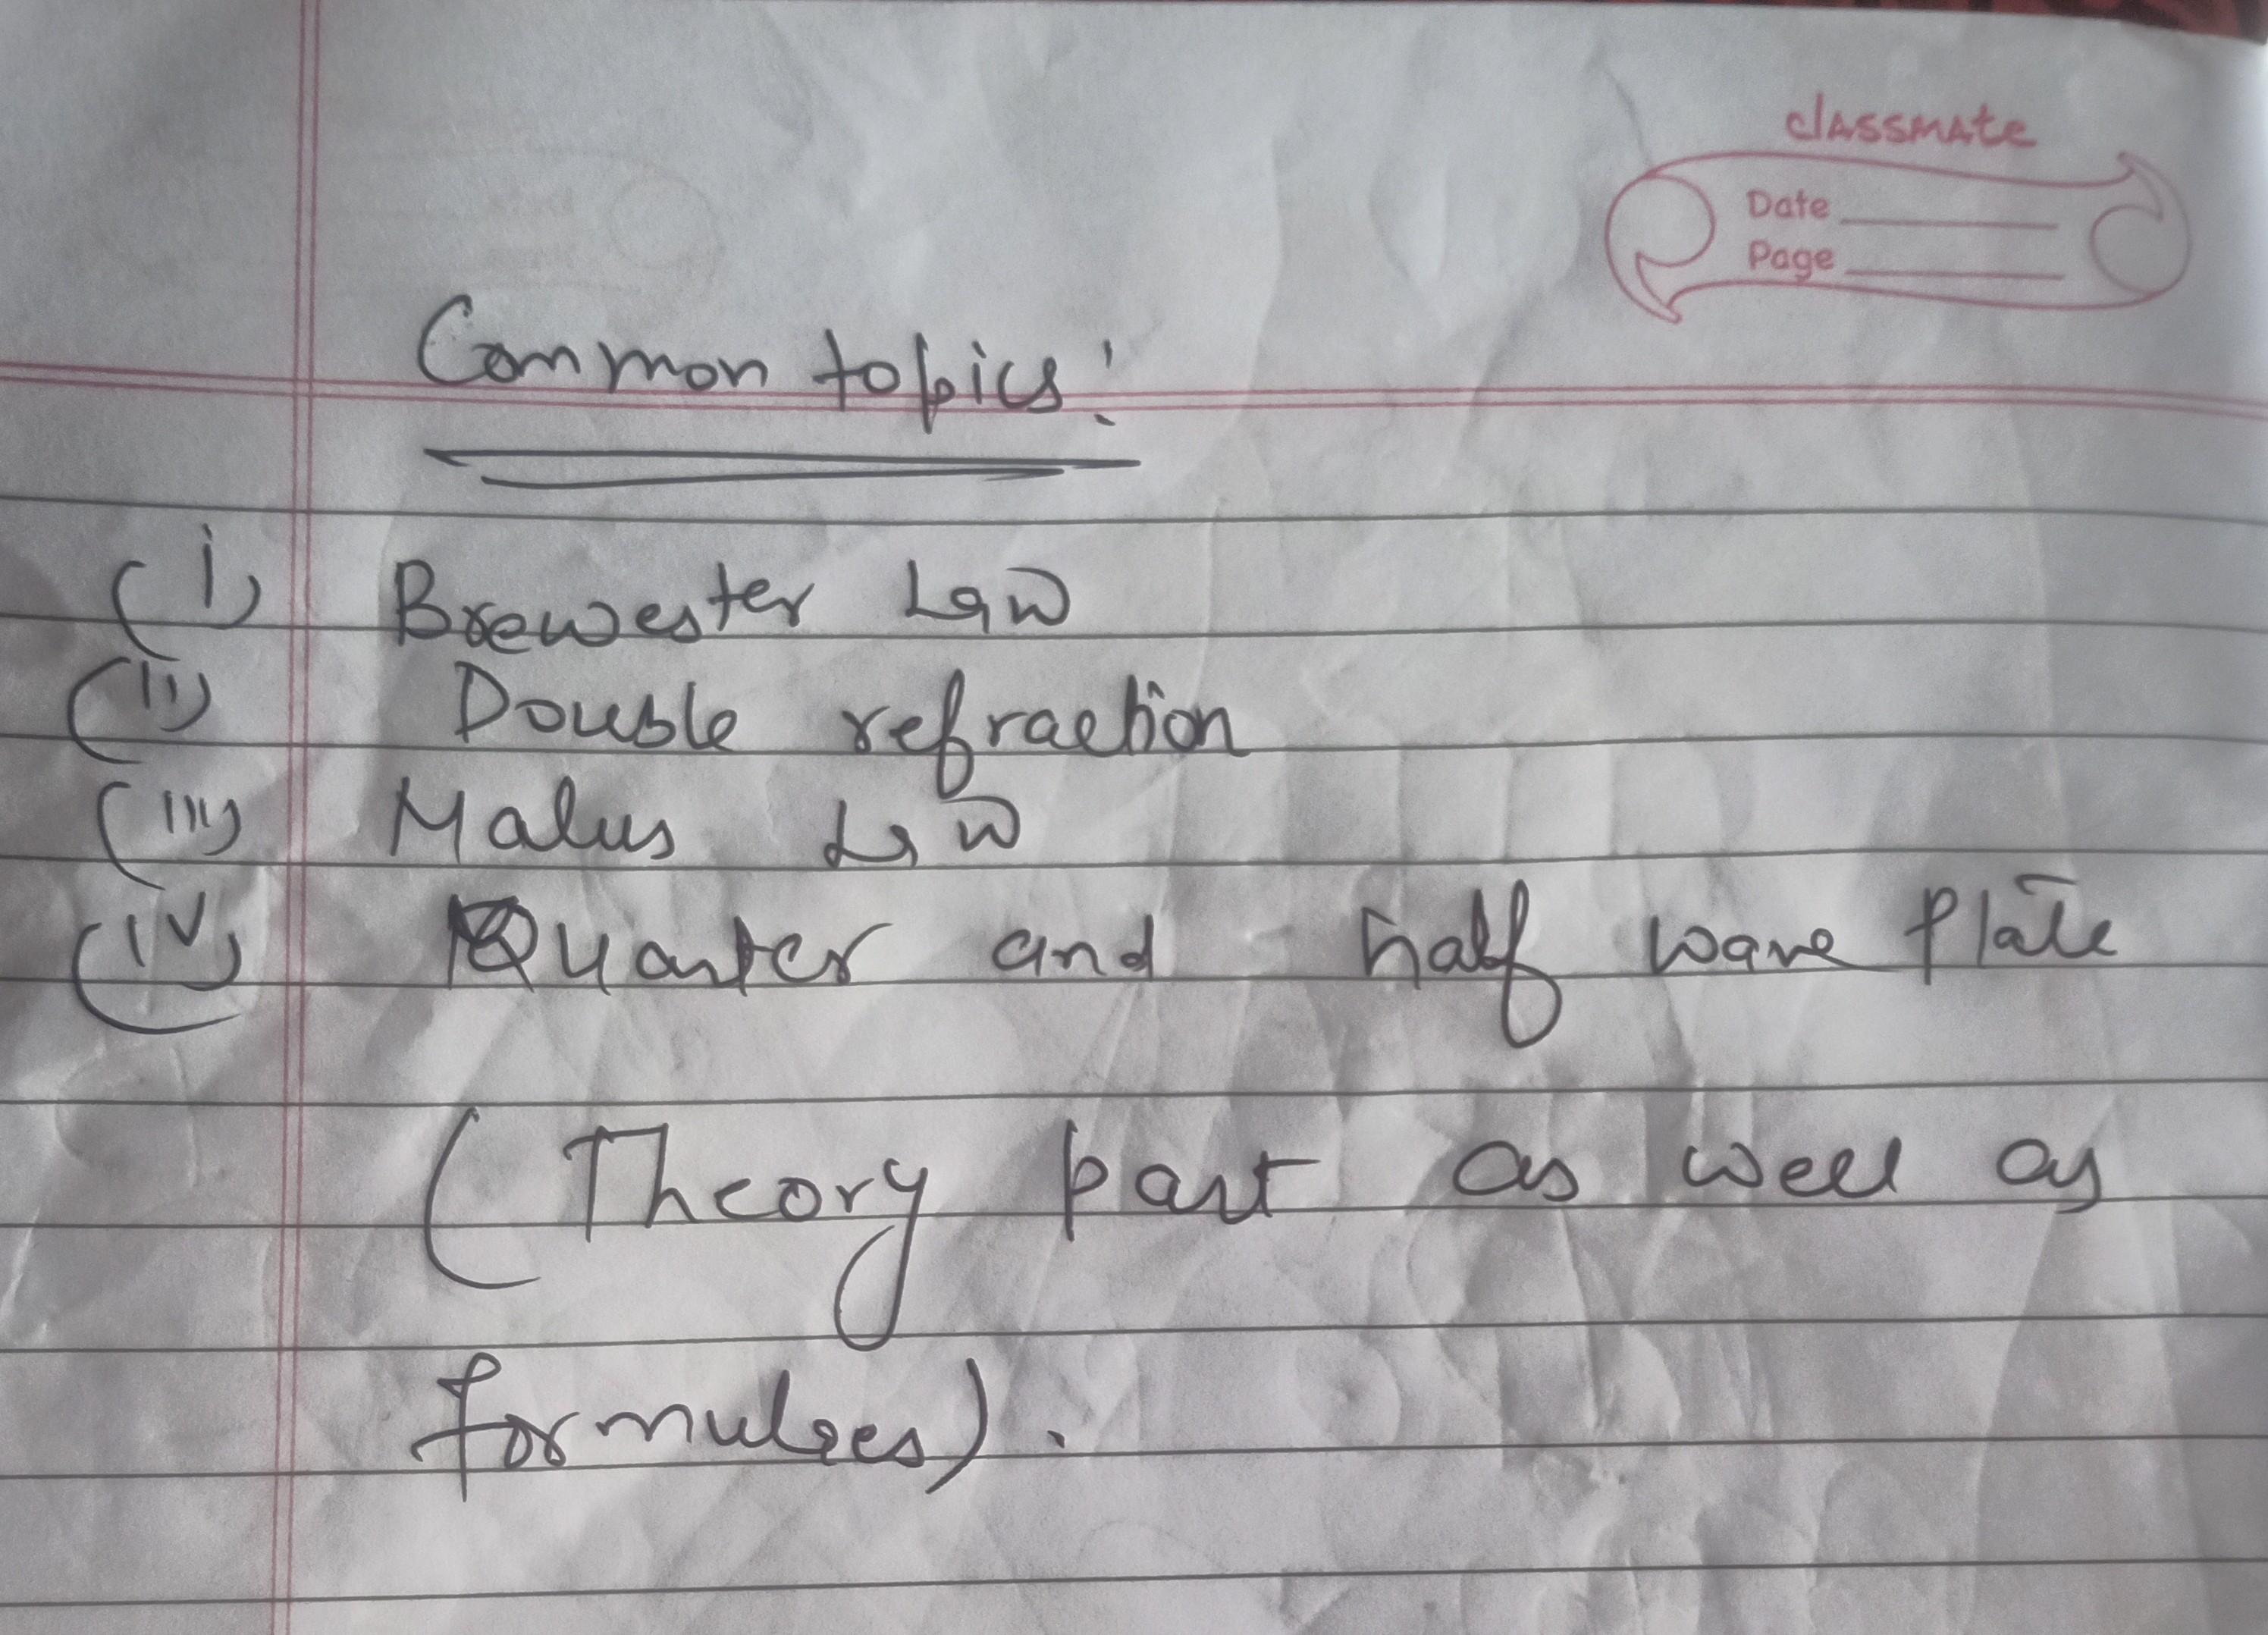 classmate
Date
Page
Common topics:
(i) Brewester Law
(ii) Double refraction
(iii) Malus Law
(iv) Quarter and half wave plate
(Theory part as well as
formulaes).